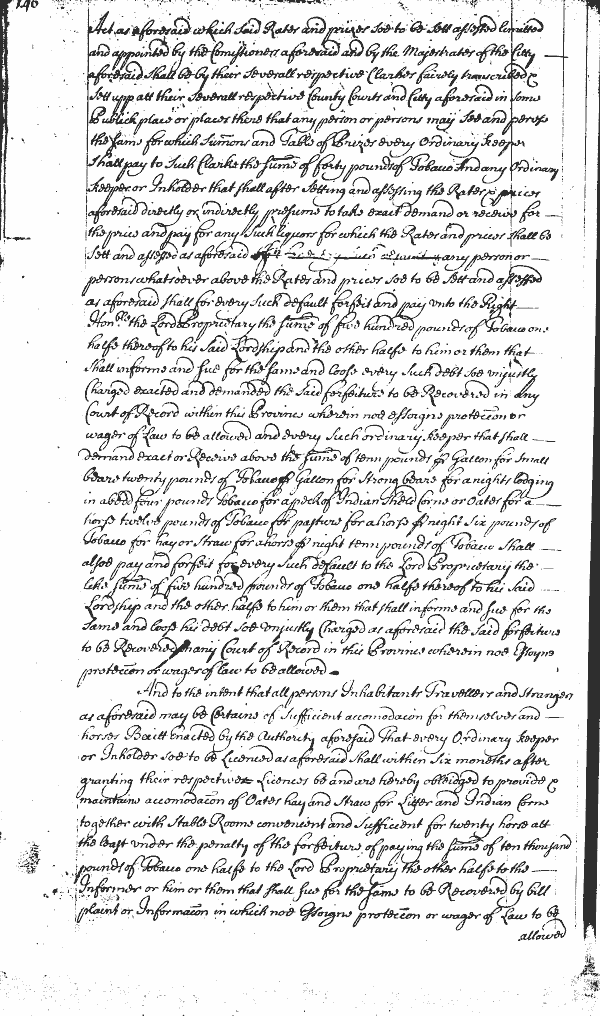 146
Act as aforesaid which said Rates and prizes soe to be Sett assessed limitted
and appointed by the Comissioners aforesaid and by the Majestrates of the Citty
aforesaid shall be by their severall respective Clarkes fairely transcribed &
Sett upp att their severall respective County Courts and Citty aforesaid in some
Publick place or places there that any person or persons may see and peruse
the same for which Sumons and Table of Prizes every Ordinary keeper
Shall pay to such Clarke the sume of forty pounds of Tobacco And any Ordinary
keeper or Inholder that shall after Setting and assessing the Rates & prices
aforesaid directly or indirectly presume to take exact demand or receive for
the price and pay for any such liquors for which the Rates and prices shall be
Sett and assessed as aforesaid any person or
persons whatsoever above the Rates and prices soe to be Sett and assessed
as aforesaid shall for every such default forfeit and pay unto the Right
Honble the Lord Proprietary the sume of five hundred pounds of Tobacco one
halfe thereof to his said Lordship and the other halfe to him or them that
shall informe and sue for the same and loose every such debt soe unjustly
Charged exacted and demanded the said forfeiture to be Recovered in any
Court of Record within this Province wherein noe essoigne proteccon or
wager of Law to be allowed and every such ordinary keeper that shall
demand exact or Receive above the sume of tenn pounds p Gallon for small
beare twenty pounds of Tobacco p Gallon for strong beare for a nights lodging
in a bedd four pounds Tobacco for a peck of Indian sheld Corne or Oates for a
horse twelve pounds of Tobacco for pasture for a horse p night six pounds of
Tobacco for hay or straw for a horse p night tenn pounds of Tobacco shall
alsoe pay and forfeit for every such default to the Lord Proprietary the
like sume of five hundred pounds of Tobacco one halfe thereof to his said
Lordship and the other halfe to him or them that shall informe and sue for the
same and loose his debt soe unjustly Charged as aforesaid the said forfeiture
to be Recovered in any Court of Record in this Province wherein noe Essoyne
proteccon or wager of law to be allowed
And to the intent that all persons Inhabitants Travellers and Strangers
as aforesaid may be Certaine of sufficient accomodacon for themselves and
horses Bee itt Enacted by the Authority aforesaid That every Ordinary keeper
or Inholder soe to be Licenced as aforesaid shall within six moneths after
granting their respective Licences be and are hereby obliedged to provide &
maintaine accomodacon of Oates hay and straw for Litter and Indian Corne
together with Stable Roome convenient and sufficient for twenty horse att
the least under the penalty of the forfeiture of paying the sume of ten thousand
pounds of Tobacco one halfe to the Lord Proprietary the other halfe to the
Informer or him or them that shall sue for the same to be Recovered by bill
plaint or Informacon in which noe Essoigne proteccon or wager of Law to be
allowed